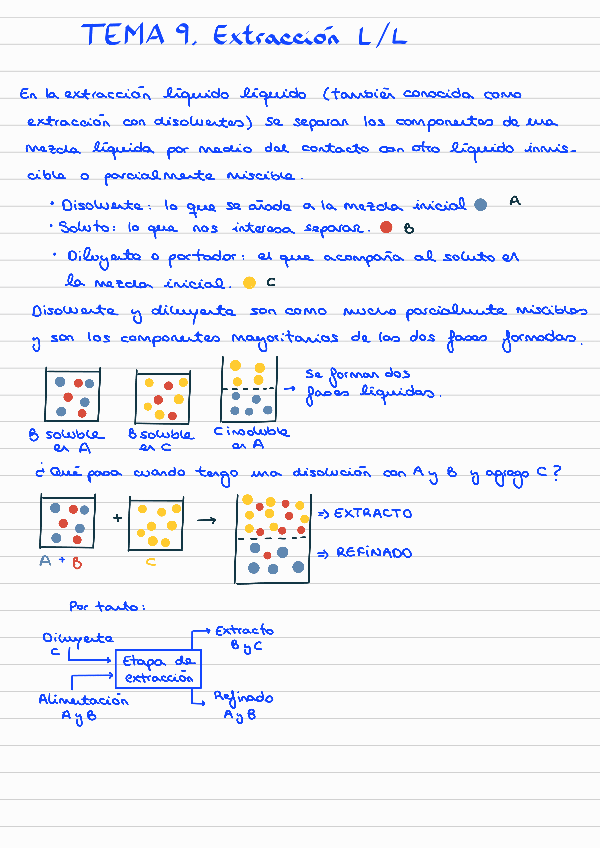 TEMA 9. Extracción L/L
En la extracción líquido líquido (también conocida como
extracción con disolventes) se separan los componentes de una
mezcla líquida por medio del contacto con otro líquido inmis-
cible o parcialmente miscible.
· Disolvente: lo que se añade a la mezcla inicial A
· Soluto: lo que nos interesa separar. B
· Diluyente o portador: el que acompaña al soluto en
la mezcla inicial. C
Disolvente y diluyente son como mucho parcialmente miscibles
y son los componentes mayoritarios de las dos fases formadas.
Se forman dos
fases líquidas.
B soluble
en A
B soluble
en C
C insoluble
en A
¿Qué pasa cuando tengo una disolución con A y B y agrego C?
+
⇒ EXTRACTO
⇒ REFINADO
A + B
C
Por tanto:
Diluyente
C
Extracto
B y C
Etapa de
extracción
Alimentación
A y B
Refinado
A y B